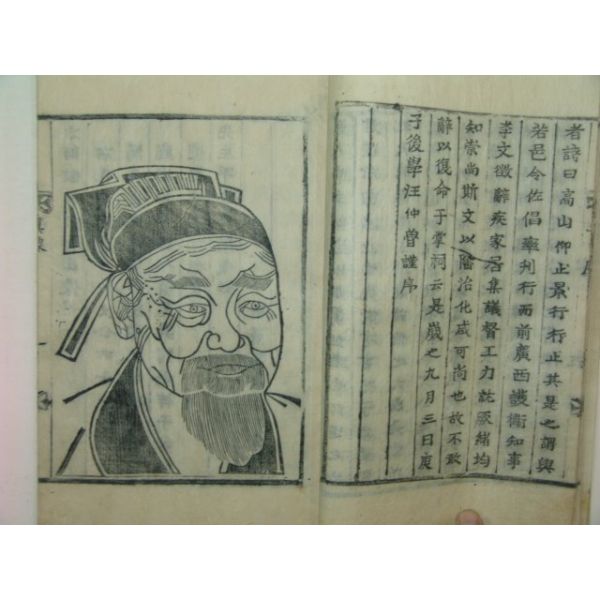 者詩曰高山仰止景行行止其是之謂與
若邑令佐倡率刊行而前廣西護衛知事
李文徵辭疾家居集議督工力就厥緒均
知崇尚斯文以隆治化咸可尚也故不敢
辭以復命于掌祠云是歲之九月三日庚
子後學汪仲魯謹序